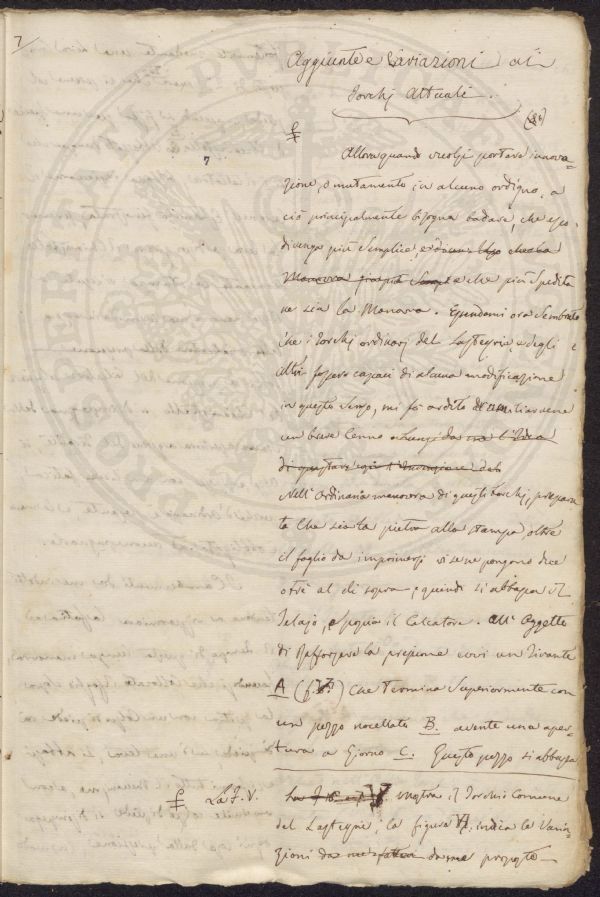 7
Aggiunte e Variazioni ai
Torchj Attuali.
Allora quando vuolsi portare innova=
zione, o mutamento in alcuno ordigno, a
ciò principalmente bisogna badare, che esso
divenga più Semplice, e che più Spedita
ne sia la Manovra. Essendomi ora Sembrato
che i Torchj ordinarj del Lasteyrie, e degli
altri fossero capaci di alcuna modificazione
in questo Senso, mi fò ardito di
un breve Cenno
Nell' Ordinaria manovra di questi torchj, prepara
ta che sia la pietra alla stampa oltre
il foglio da imprimersi vi se ne pongono due
o tre al di sopra, quindi si abbassa il
Telajo, e poscia il Calcatore. All' Oggetto
di rafforzare la pressione evvi un Tirante
A (f. ) che termina Superiormente con
un pezzo nocellato B. avente una aper-
tura a Giorno C. Questo pezzo si abbassa
La F. V. mostra il Torchio Comune
del Lasteyrie, la figura VI. indica le Varia-
zioni da me proposte